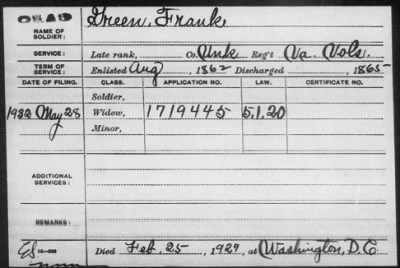 DEAD
Green, Frank
NAME OF SOLDIER:
SERVICE: Late rank, Co. Unk Reg't Va. Vols.
TERM OF SERVICE: Enlisted Aug , 1862 Discharged , 1865
DATE OF FILING. CLASS. APPLICATION NO. LAW. CERTIFICATE NO.
Soldier,
1932 May 28 Widow, 1719445 5.1.20
Minor,
ADDITIONAL SERVICES:
REMARKS:
Died Feb. 25 , 1927, at Washington, D.C